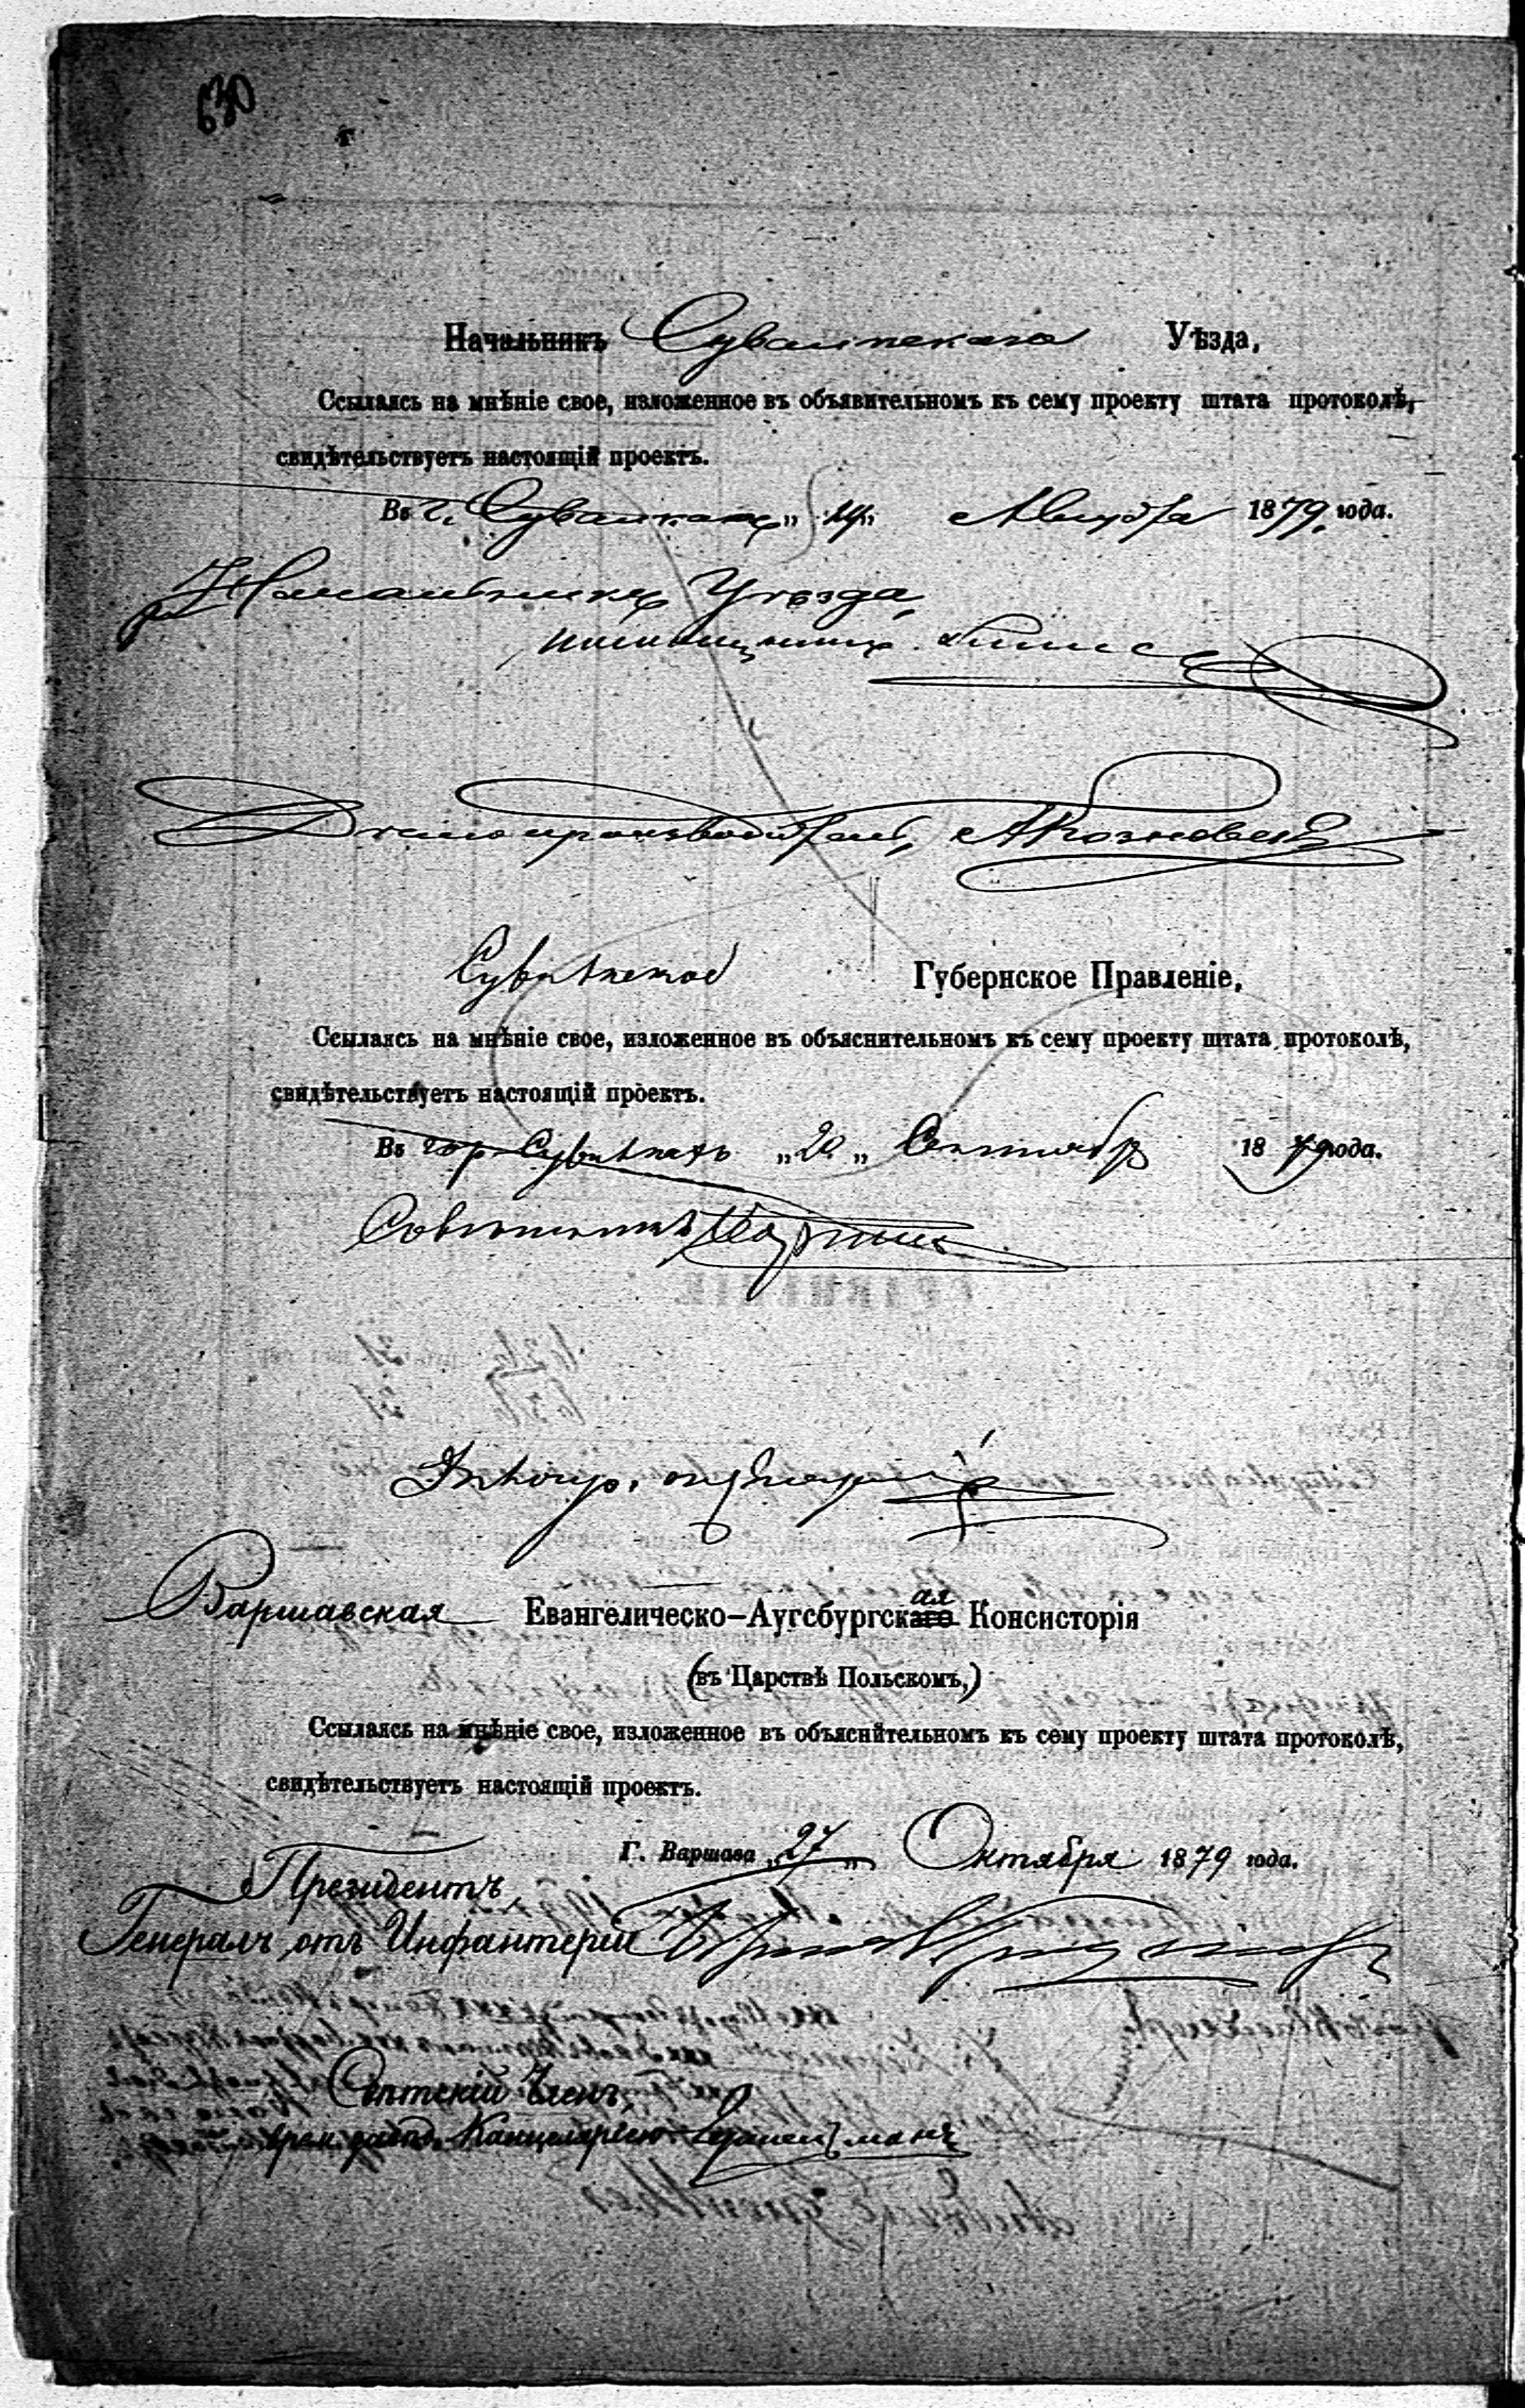 630
Начальникъ Сувалкскаго Уѣзда,
Ссылаясь на мнѣніе свое, изложенное въ объявительномъ къ сему проекту штата протоколѣ,
свидѣтельствуетъ настоящій проектъ.
Въ г. Сувалкахъ „14„ Августа 1879 года.
Начальникъ Уѣзда,
Дѣлопроизводитель,
Сувалкское Губернское Правленіе,
Ссылаясь на мнѣніе свое, изложенное въ объяснительномъ къ сему проекту штата протоколѣ,
свидѣтельствуетъ настоящій проектъ.
Въ гор. Сувалкахъ „20„ Сентября 1879 года.
Совѣтникъ
Варшавская Евангелическо-Аугсбургская Консисторія
(въ Царствѣ Польскомъ,)
Ссылаясь на мнѣніе свое, изложенное въ объяснительномъ къ сему проекту штата протоколѣ,
свидѣтельствуетъ настоящій проектъ.
Г. Варшава „27„ Октября 1879 года.
Президентъ,
Генералъ отъ Инфантеріи
Свѣтскій Членъ,
Канцеляріею